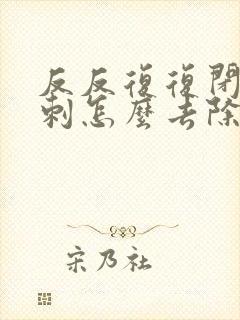 反反復復閉
刺怎麼去除
宋乃社